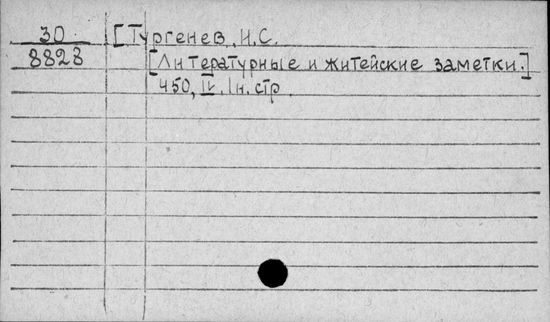 30
8823
[Тургенев, И.С.
[Литературные и житейские заметки.]
450, IV, 1н. стр.